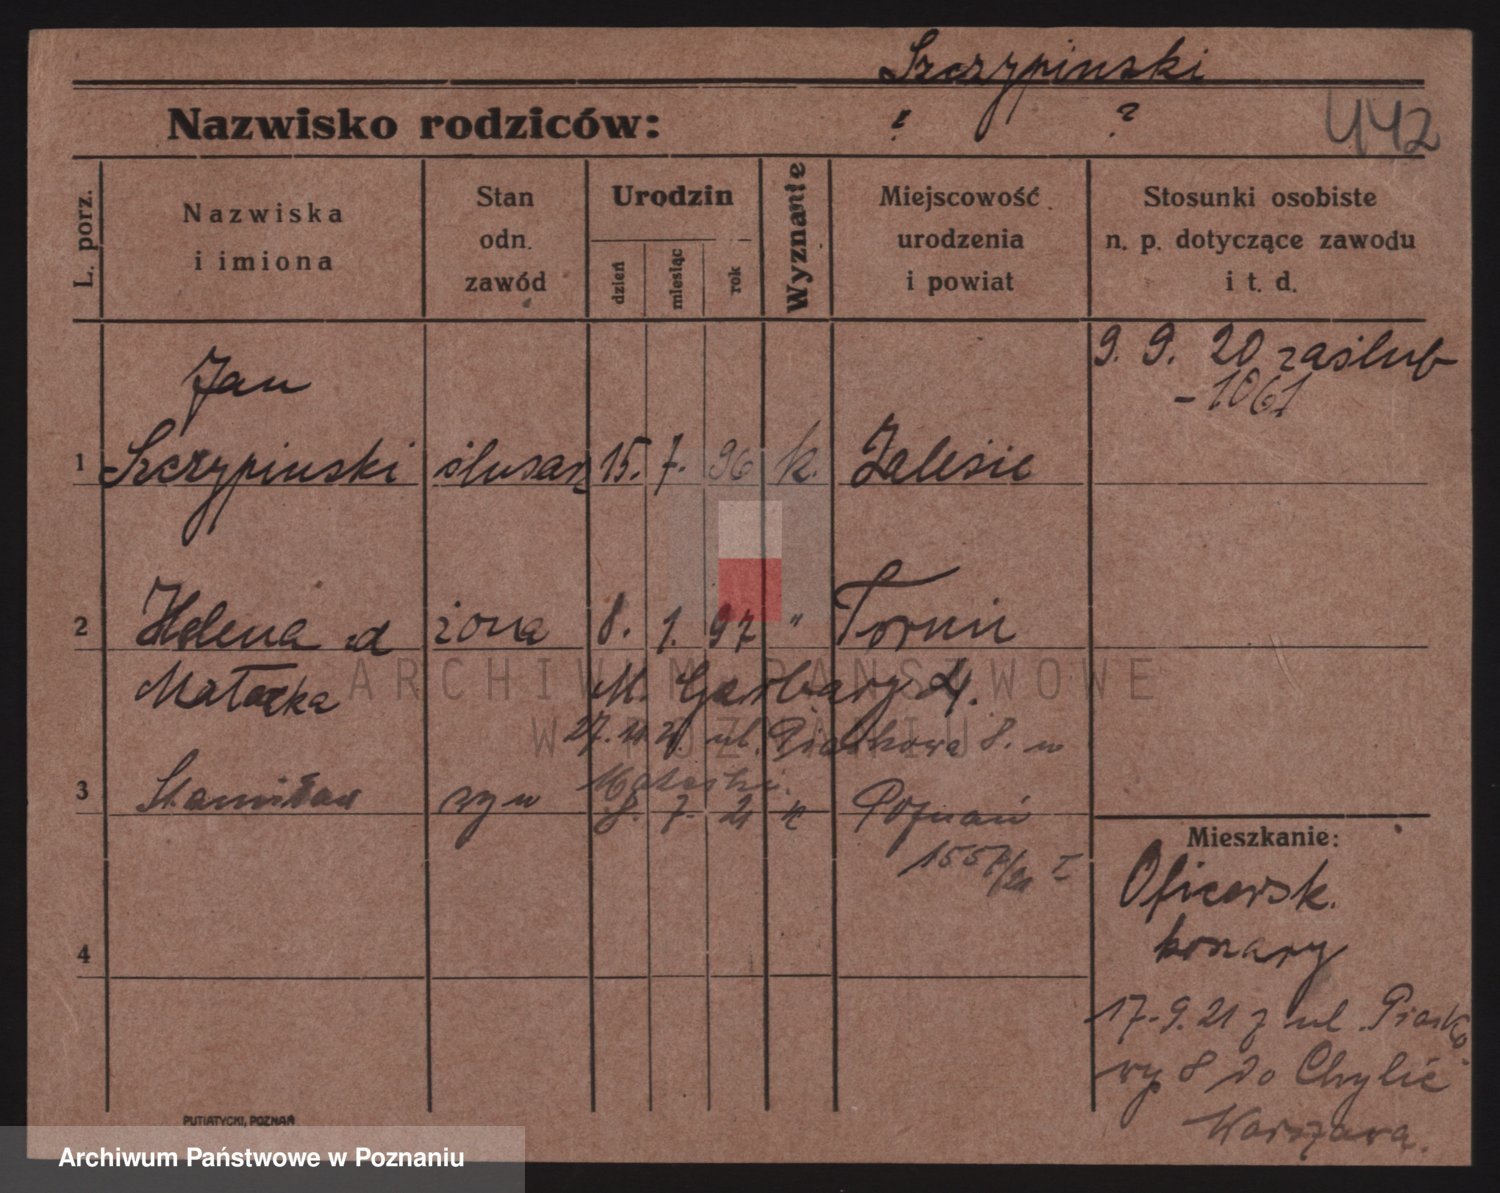 Szczypinski
Nazwisko rodziców: ? ? 442
L. porz.
Nazwiska i imiona
Stan odn. zawód
Urodzin
dzień miesiąc rok
Wyznanie
Miejscowość urodzenia i powiat
Stosunki osobiste n. p. dotyczące zawodu i t. d.
9. 9. 20 zaślub
- 1061
Jan
1 Szczypinski ślusarz 15. 7. 96 k. Zalesie
2 Helena żona 8. 1. 97 " Toruń
Małecka M. Garbary 4.
ul. Piaskowa 8. w
3 Stanisław syn 8. 7. 21 k Poznań
I
4
Mieszkanie:
Oficersk.
koszary
17.9.21 z ul. Piasko
wy 8 do Chylic
Warszawa.
PUTIATYCKI, POZNAŃ
ARCHIWUM PAŃSTWOWE
W POZNANIU
Archiwum Państwowe w Poznaniu